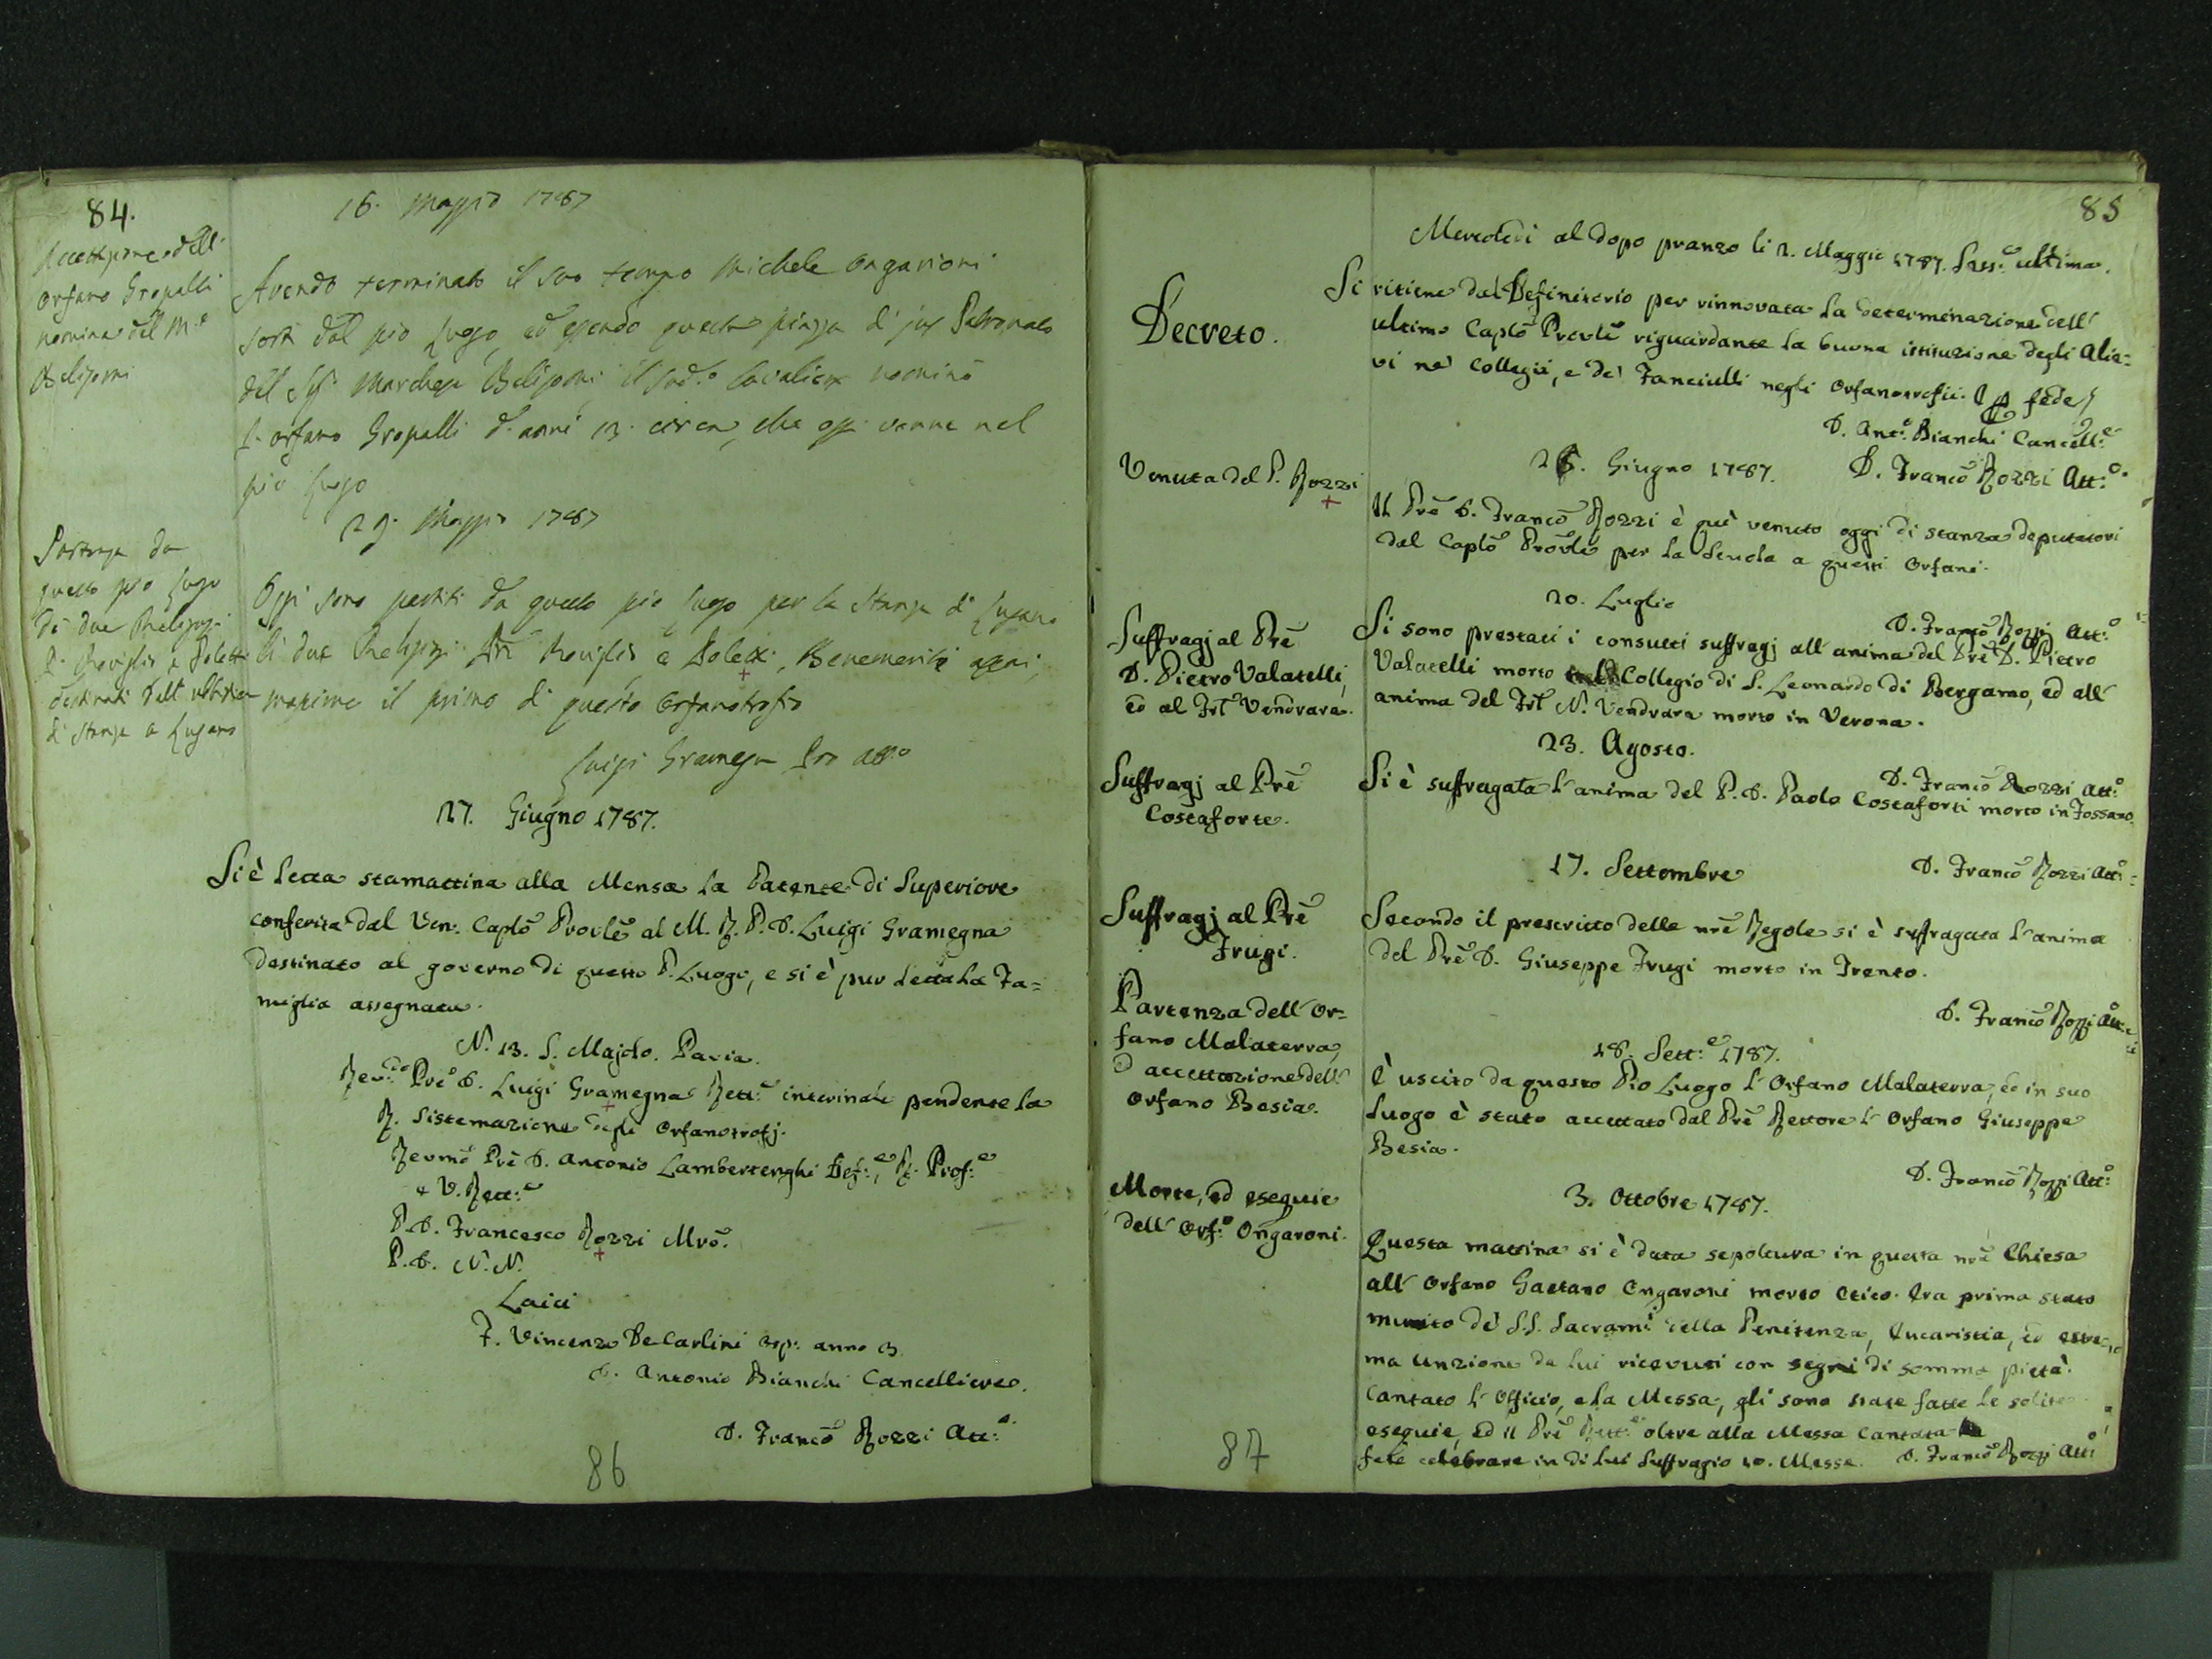 84.
16. Maggio 1787
Accettazione dell'
orfano Gropalli
nomina del M.e
Belisomi
Avendo terminato il suo tempo Michele Ongarioni
sortì dal pio luogo, ed essendo questa piazza di jus Patronato
del Sig. Marchese Belisomi, il sud.o Cavaliere nominò
l'orfano Gropalli d'anni 13. circa, che oggi venne nel
pio luogo
29. Maggio 1787
Partenza da
questo pio luogo
di due Religiosi
destinati dall'
di Stanza a Lugano
Oggi sono partiti da questo pio luogo per la Stanza di Lugano
li due Religiosi Roviglio e Poletti, Benemeriti assai,
massime il primo di questo Orfanotrofio
Luigi Gramegna Pro Att.o
27. Giugno 1787.
Si è letta stamattina alla Mensa la Patente di Superiore
conferita dal Ven. Caplõ Provlẽ al M. R. P. D. Luigi Gramegna
destinato al governo di questo P. Luogo, e si è pur letta la Fa=
miglia assegnata.
N. 13. S. Majolo. Pavia.
Rev.do Prẽ D. Luigi Gramegna Rett.e interinale pendente la
R. Sistemazione degli Orfanotrofj.
Revmõ Prẽ D. Antonio Lambertenghi Def.e, R. Prof.e
e V. Rett.e
P. D. Francesco Rozzi Mrõ.
P. D. N. N.
Laici
F. Vincenzo De Carlini osp: anno 3.
D. Antonio Bianchi Cancelliere.
D. Francõ Rozzi Att.o
86
85
Mercoledì al dopo pranzo li 2. Maggio 1787. Sess.e ultima.
Decreto.
Si ritiene dal Definitorio per rinnovata la determinazione dell'
ultimo Caplõ Provlẽ riguardante la buona istituzione degli Alie=
vi ne' Collegii, e de' Fanciulli negli Orfanotrofii. fede
D. Ant.o Bianchi Cancell.e
Venuta del P. Rozzi
Giugno 1787. D. Francõ Rozzi Att.o
Il Prẽ D. Francõ Rozzi è quì venuto oggi di stanza deputatovi
dal Caplõ Provlẽ per la Scuola a questi Orfani.
20. Luglio
D. Francõ Rozzi Att.o
Suffragj al Prẽ
D. Pietro Valatelli,
ed al Frl̃ Vendrara.
Si sono prestati i consueti suffragj all'anima del Prẽ D. Pietro
Valatelli morto Collegio di S. Leonardo di Bergamo, ed all'
anima del Frl̃ N. Vendrara morto in Verona.
23. Agosto.
D. Francõ Rozzi Att.o
Suffragj al Prẽ
Costaforte.
Si è suffragata l'anima del P. D. Paolo Costaforti morto in Fossano.
17. Settembre D. Francõ Rozzi Att.o
Suffragj al Prẽ
Frugi.
Secondo il prescritto delle nrẽ Regole si è suffragata l'anima
del Prẽ D. Giuseppe Frugi morto in Trento.
D. Francõ Rozzi Att.o
Partenza dell'Or=
fano Malaterra,
ed accettazione dell'
Orfano Besia.
18. Sett.e 1787.
È uscito da questo Pio Luogo l'Orfano Malaterra, ed in suo
luogo è stato accettato dal Prẽ Rettore l'Orfano Giuseppe
Besia.
D. Francõ Rozzi Att.o
3. Ottobre 1787.
Morte, ed esequie
dell'Orf.o Ongaroni.
Questa mattina si è data sepoltura in questa nrã Chiesa
all'Orfano Gaetano Ongaroni morto etico. Era prima stato
munito de' SS. Sacramĩ della Penitenza, Eucaristia, ed estre=
ma unzione da lui ricevuti con segni di somma pietà.
Cantato l'Officio, e la Messa, gli sono state fatte le solite
esequie, ed il Prẽ Rett.e oltre alla Messa cantata
fece celebrare in di lui suffragio 10. Messe. D. Francõ Rozzi Att.o
87